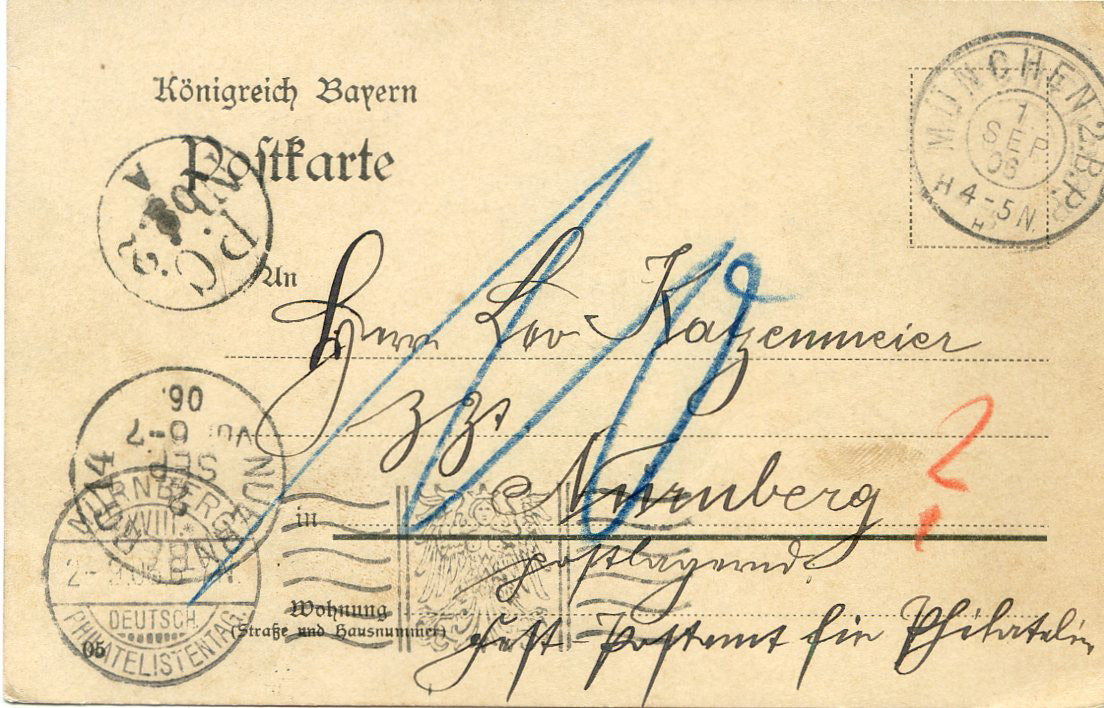 Königreich Bayern
Postkarte
MÜNCHEN 2. B.P.
1
SEP
06
4-5 N.
P.C. 2
Nbg
A
An
Herrn Leo Katzenmeier
zzt.
in Nürnberg
postlagernd
Fest-Postamt für Philatelie
Wohnung
(Straße und Hausnummer)
05
10
?
NÜRNBERG
14
2
SEP
6-7
06.
NÜRNBERG
XVIII.
DEUTSCH.
PHILATELISTENTAG.